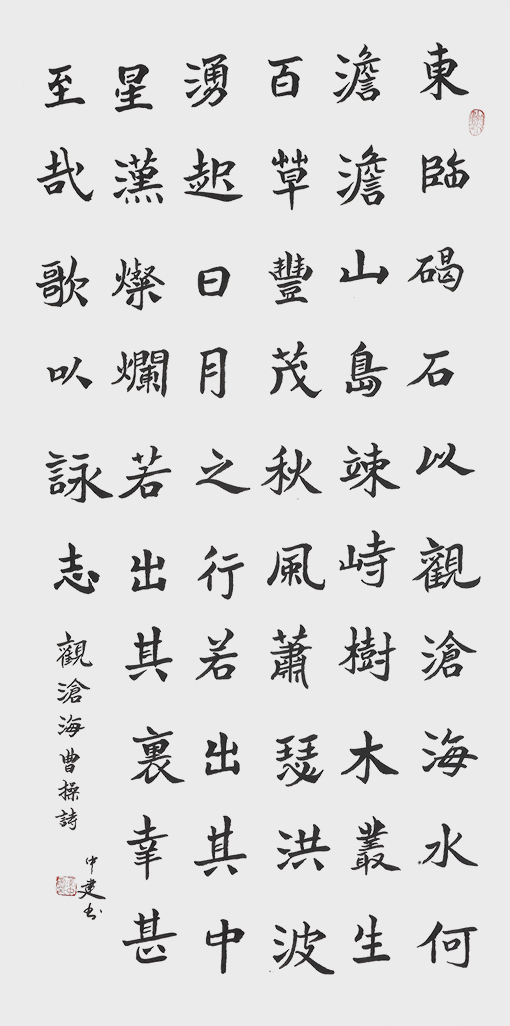 東臨碣石以觀滄海水何
澹澹山島竦峙樹木叢生
百草豐茂秋風蕭瑟洪波
湧起日月之行若出其中
星漢燦爛若出其裏幸甚
至哉歌以詠志
觀滄海曹操詩
中建书